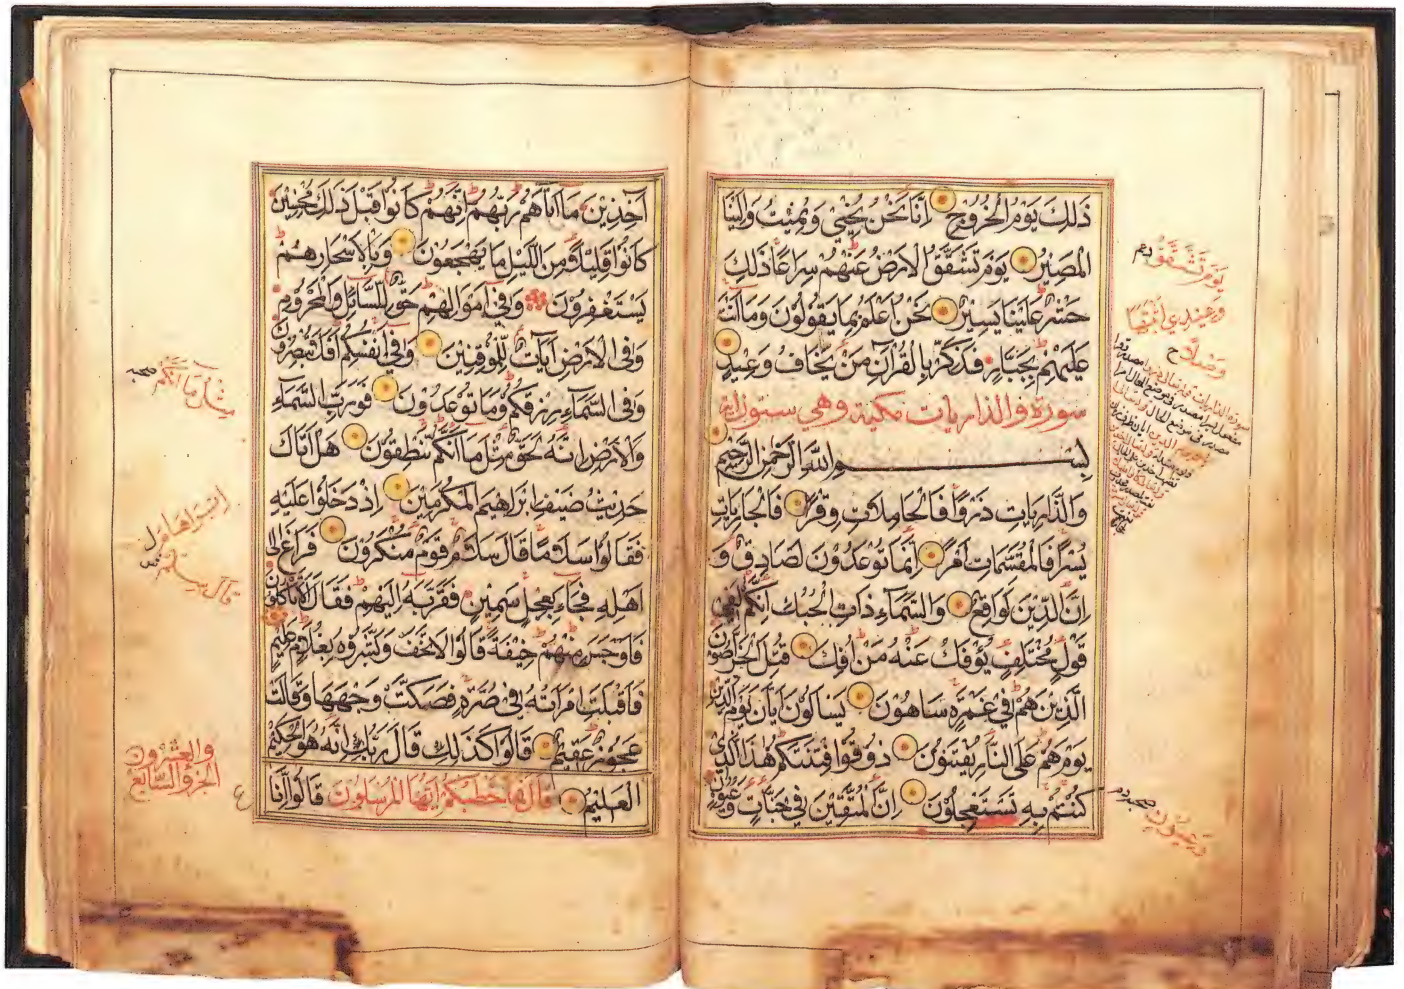 ذَلِكَ يَوْمُ الْخُرُوجِ اِنَّا نَحْنُ نُحْيِي وَنُمِيتُ وَاِلَيْنَا
الْمَصِيرُ يَوْمَ تَشَقَّقُ الْاَرْضُ عَنْهُمْ سِرَاعًا ذَلِكَ
حَشْرٌ عَلَيْنَا يَسِيرٌ نَحْنُ اَعْلَمُ بِمَا يَقُولُونَ وَمَا اَنْتَ
عَلَيْهِمْ بِجَبَّارٍ فَذَكِّرْ بِالْقُرْآنِ مَنْ يَخَافُ وَعِيدِ
سورة والذاريات مكية وهي ستون آية
بِسْمِ اللَّهِ الرَّحْمَنِ الرَّحِيمِ
وَالذَّارِيَاتِ ذَرْوًا فَالْحَامِلَاتِ وِقْرًا فَالْجَارِيَاتِ
يُسْرًا فَالْمُقَسِّمَاتِ اَمْرًا اِنَّمَا تُوعَدُونَ لَصَادِقٌ وَ
اِنَّ الدِّينَ لَوَاقِعٌ وَالسَّمَاءِ ذَاتِ الْحُبُكِ اِنَّكُمْ لَفِي
قَوْلٍ مُخْتَلِفٍ يُؤْفَكُ عَنْهُ مَنْ اُفِكَ قُتِلَ الْخَرَّاصُونَ
الَّذِينَ هُمْ فِي غَمْرَةٍ سَاهُونَ يَسْاَلُونَ اَيَّانَ يَوْمُ الدِّينِ
يَوْمَ هُمْ عَلَى النَّارِ يُفْتَنُونَ ذُوقُوا فِتْنَتَكُمْ هَذَا الَّذِي
كُنْتُمْ بِهِ تَسْتَعْجِلُونَ اِنَّ الْمُتَّقِينَ فِي جَنَّاتٍ وَعُيُونٍ
يَوْمَ تَشَقَّقُ
آخِذِينَ مَا اٰتَاهُمْ رَبُّهُمْ اِنَّهُمْ كَانُوا قَبْلَ ذَلِكَ مُحْسِنِينَ
كَانُوا قَلِيلًا مِنَ اللَّيْلِ مَا يَهْجَعُونَ وَبِالْاَسْحَارِ هُمْ
يَسْتَغْفِرُونَ وَفِي اَمْوَالِهِمْ حَقٌّ لِلسَّائِلِ وَالْمَحْرُومِ
وَفِي الْاَرْضِ آيَاتٌ لِلْمُوقِنِينَ وَفِي اَنْفُسِكُمْ اَفَلَا تُبْصِرُونَ
وَفِي السَّمَاءِ رِزْقُكُمْ وَمَا تُوعَدُونَ فَوَرَبِّ السَّمَاءِ
وَالْاَرْضِ اِنَّهُ لَحَقٌّ مِثْلَ مَا اَنَّكُمْ تَنْطِقُونَ هَلْ اَتَاكَ
حَدِيثُ ضَيْفِ اِبْرَاهِيمَ الْمُكْرَمِينَ اِذْ دَخَلُوا عَلَيْهِ
فَقَالُوا سَلَامًا قَالَ سَلَامٌ قَوْمٌ مُنْكَرُونَ فَرَاغَ اِلَى
اَهْلِهِ فَجَاءَ بِعِجْلٍ سَمِينٍ فَقَرَّبَهُ اِلَيْهِمْ فَقَالَ اَلَا تَاْكُلُونَ
فَاَوْجَسَ مِنْهُمْ خِيفَةً قَالُوا لَا تَخَفْ وَبَشَّرُوهُ بِغُلَامٍ عَلِيمٍ
فَاَقْبَلَتِ امْرَاَتُهُ فِي صَرَّةٍ فَصَكَّتْ وَجْهَهَا وَقَالَتْ
عَجُوزٌ عَقِيمٌ قَالُوا كَذَلِكِ قَالَ رَبُّكِ اِنَّهُ هُوَ الْحَكِيمُ
الْعَلِيمُ قَالَ فَمَا خَطْبُكُمْ اَيُّهَا الْمُرْسَلُونَ قَالُوا اِنَّا
مِثْلُ مَا اَنَّكُمْ
والعشرون
الجزو السابع